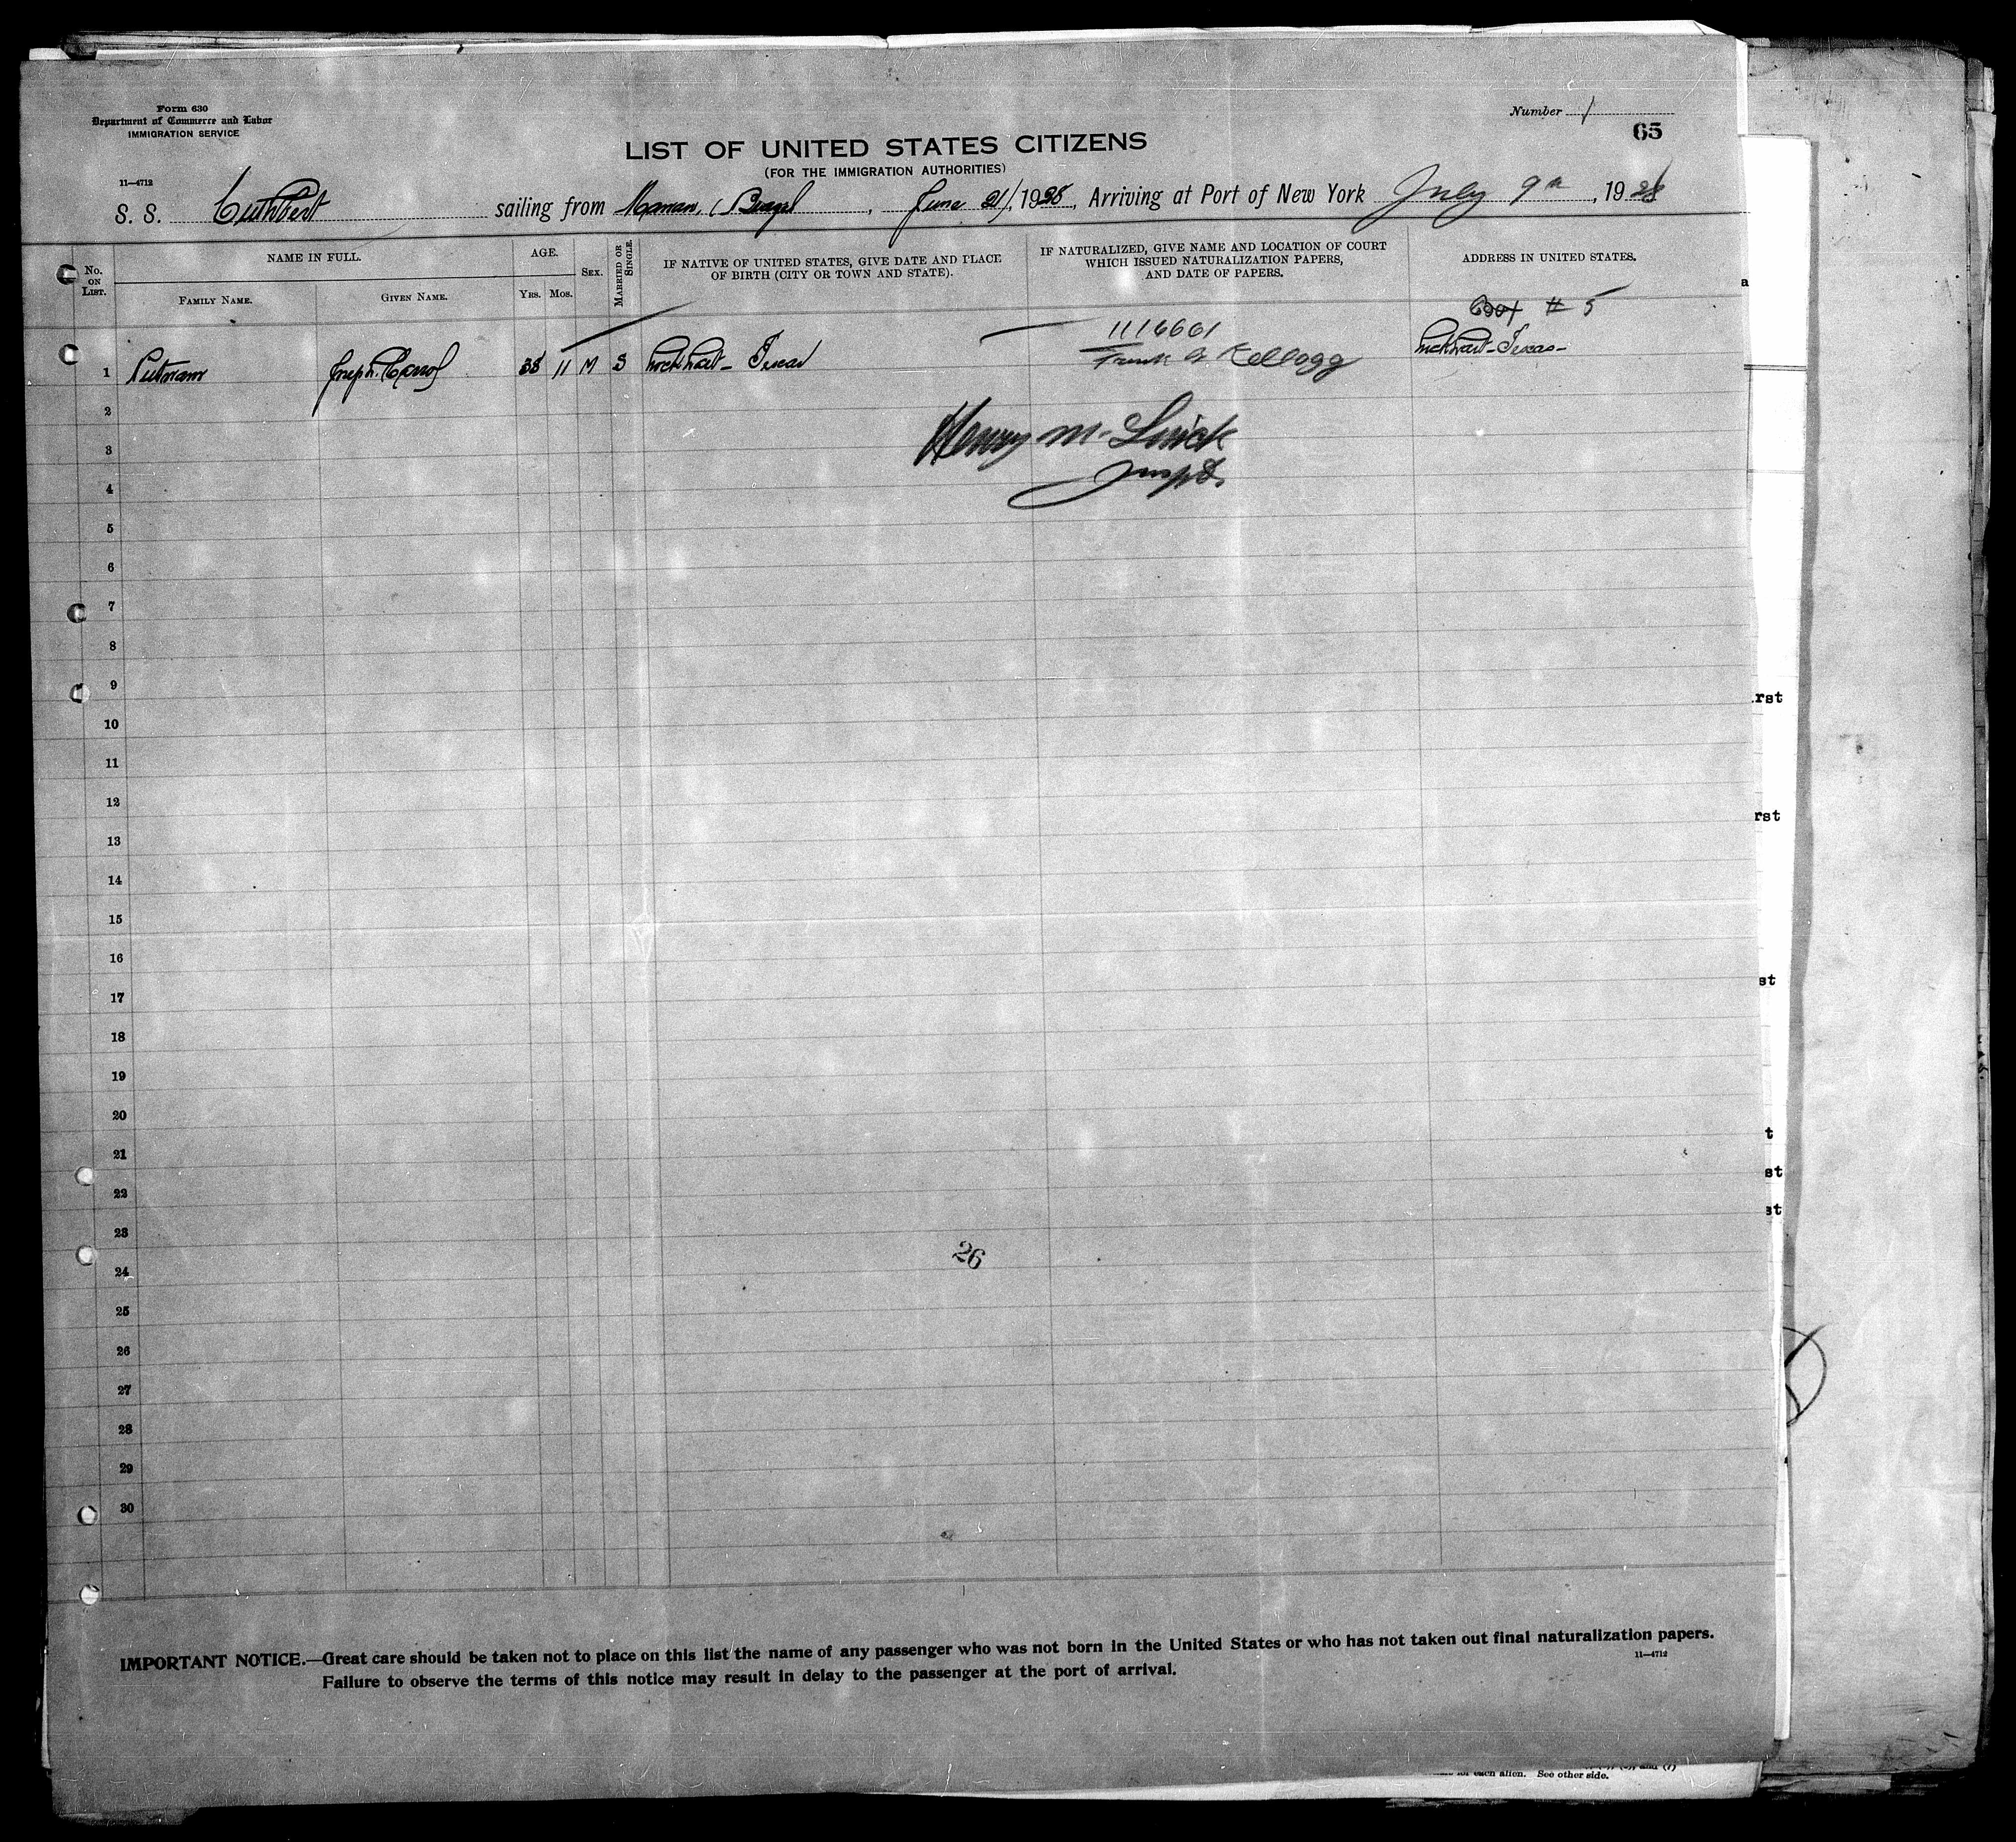 Form 630
Department of Commerce and Labor
IMMIGRATION SERVICE
Number 1
65
LIST OF UNITED STATES CITIZENS
(FOR THE IMMIGRATION AUTHORITIES)
11—4712
S. S. Cuthbert sailing from Brazil, June 21/, 1928, Arriving at Port of New York July 9th, 1928
No. ON LIST.
NAME IN FULL.
FAMILY NAME.
GIVEN NAME.
AGE.
YRS.
MOS.
SEX.
MARRIED OR SINGLE.
IF NATIVE OF UNITED STATES, GIVE DATE AND PLACE
OF BIRTH (CITY OR TOWN AND STATE).
IF NATURALIZED, GIVE NAME AND LOCATION OF COURT
WHICH ISSUED NATURALIZATION PAPERS,
AND DATE OF PAPERS.
ADDRESS IN UNITED STATES.
Box # 5
1 Putnam Joseph. Carrol 38 11 M S Lockhart - Texas
1116661
Frank B Kellogg
Lockhart - Texas -
2
Henry M.
3
Insptr.
4
5
6
7
8
9
10
11
12
13
14
15
16
17
18
19
20
21
22
23
26
24
25
26
27
28
29
30
IMPORTANT NOTICE.—Great care should be taken not to place on this list the name of any passenger who was not born in the United States or who has not taken out final naturalization papers.
Failure to observe the terms of this notice may result in delay to the passenger at the port of arrival.
11—4712
for each alien. See other side.